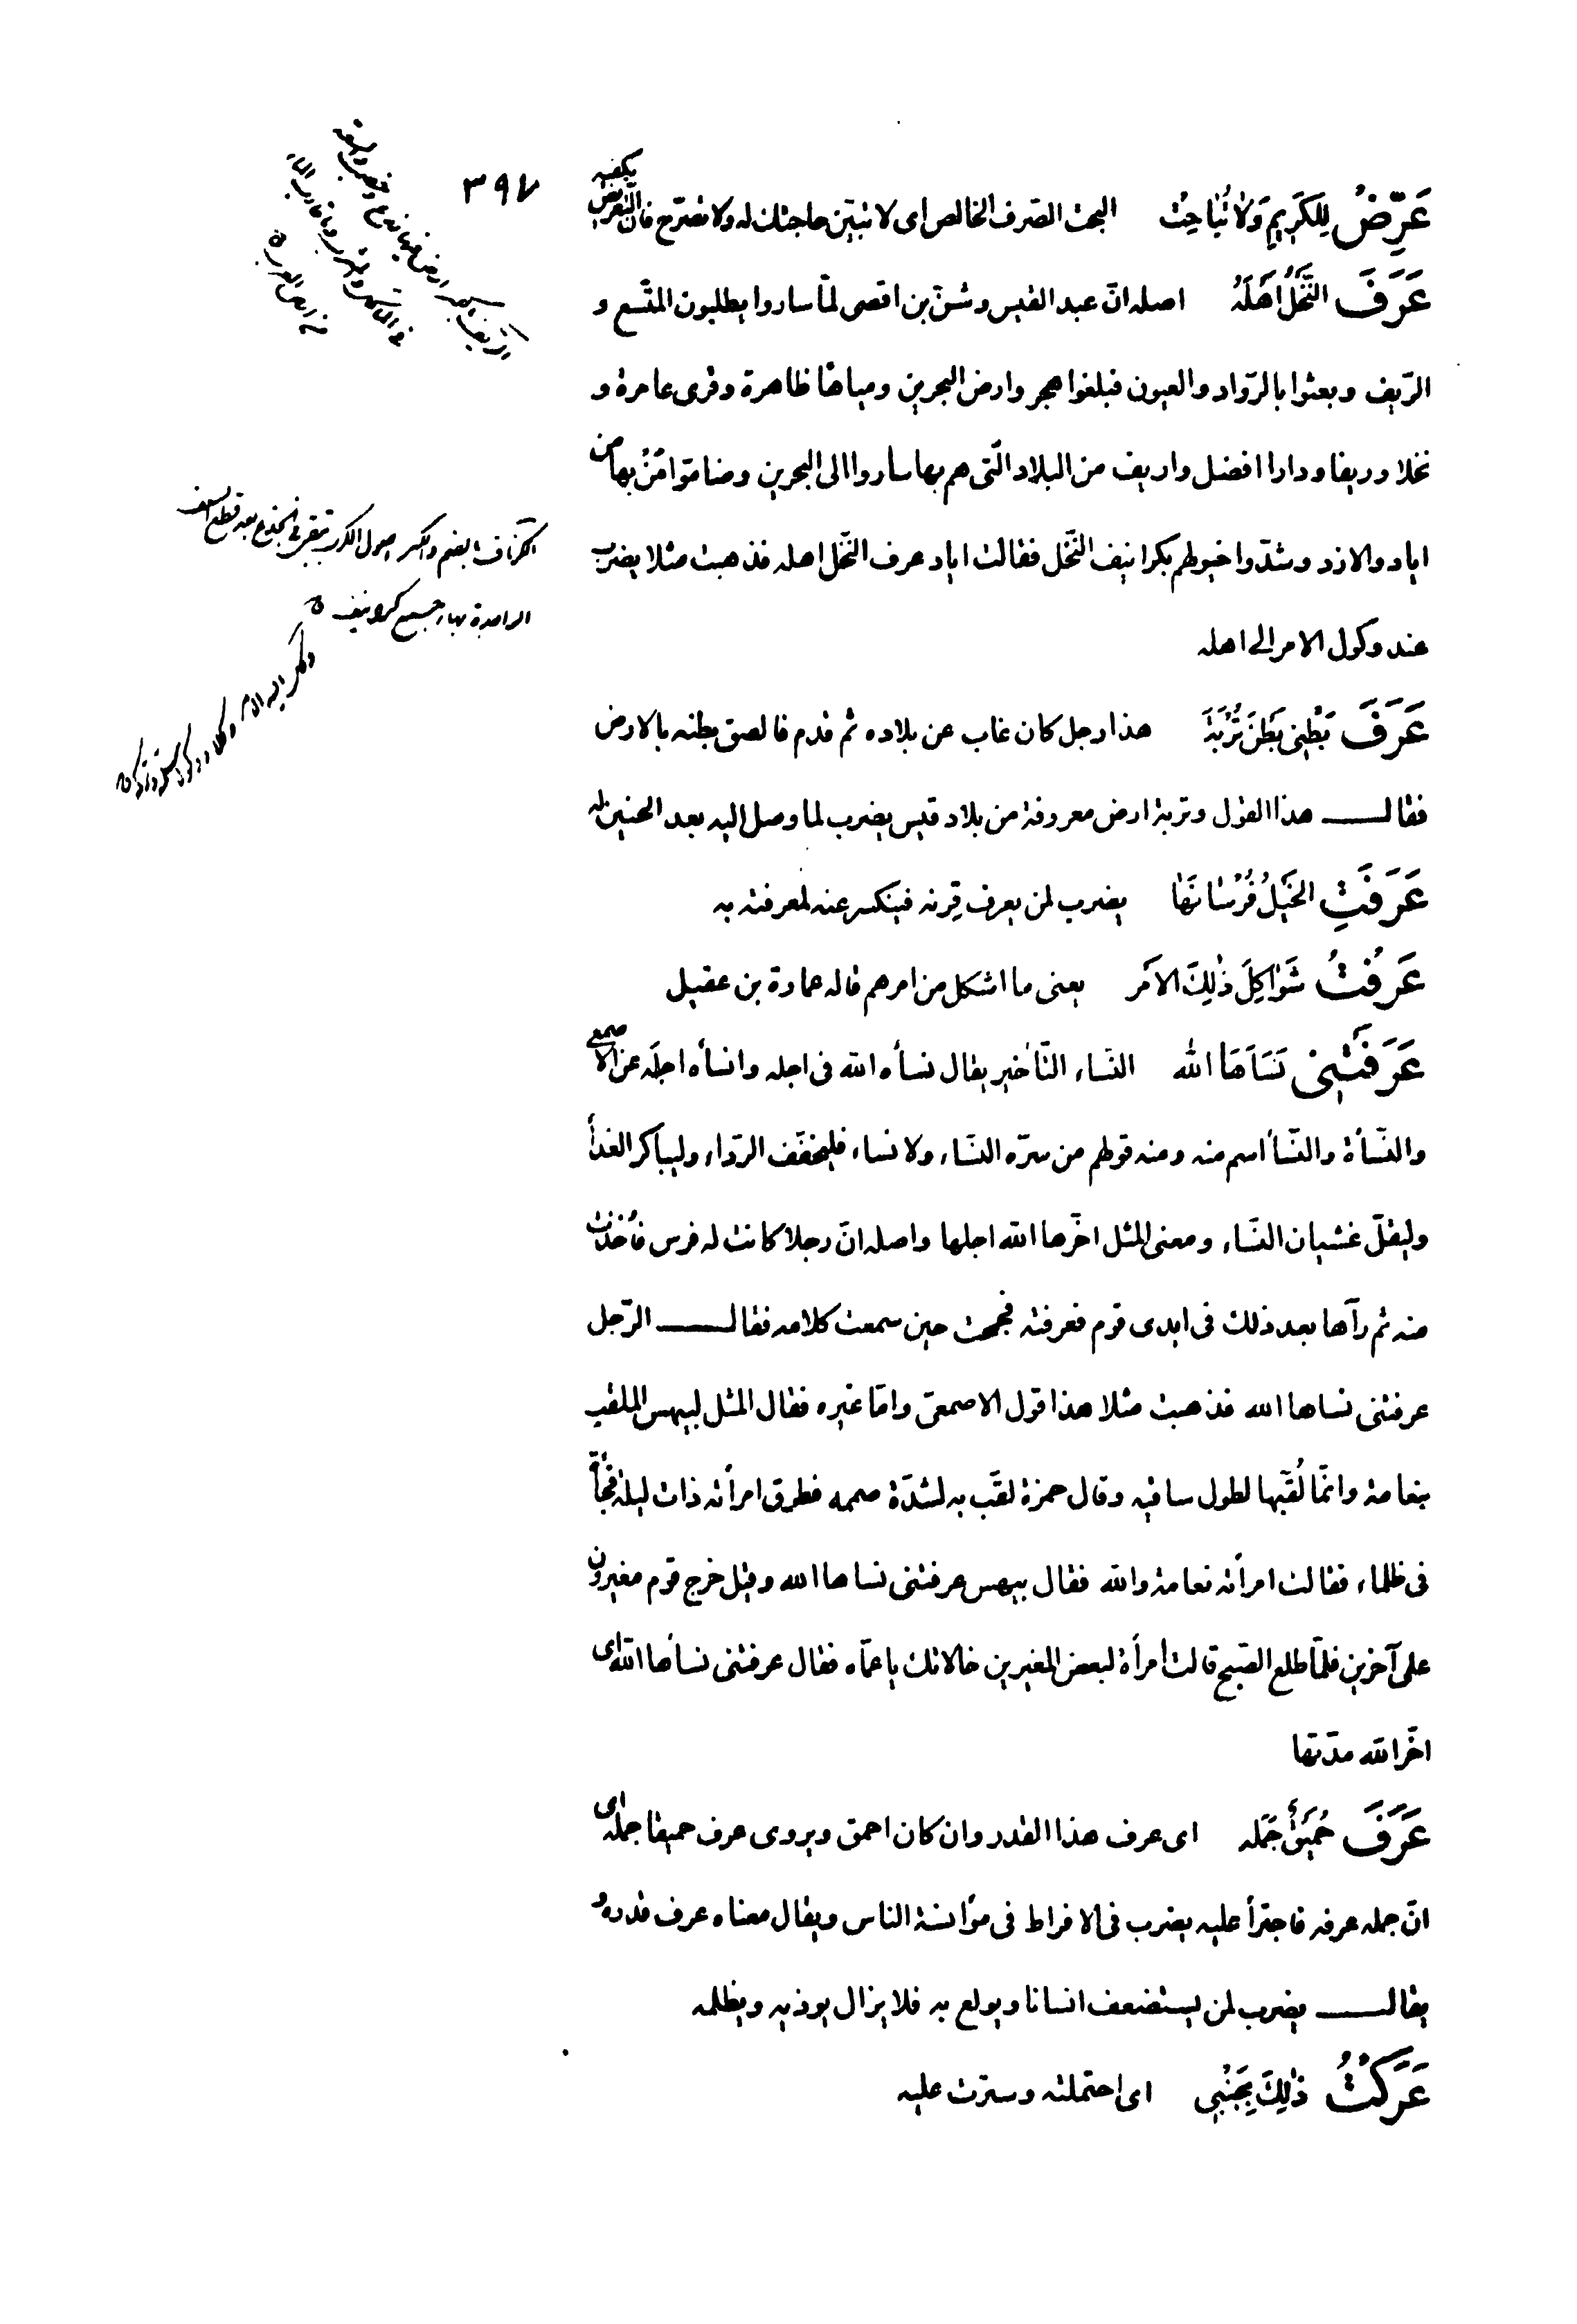 ٣٩٧
عَرِّضْ لِلكَرِيمِ وَلا تُبَاحِث البحت الصّرف الخالص اى لا تبيّن حاجتك له ولا تصرّح فانّ التّعريض يكفيه
عَرَفَ النَّخْلُ اَهْلَهُ اصله انّ عبد القيس وشنّ بن افصى لمّا ساروا يطلبون المتّسع و
الرّيف وبعثوا بالرّواد والعيون فبلغوا هجر وارض البحرين ومياها ظاهرة وقرى عامرة و
نخلا وريفا ودارا افضل واريف من البلاد الّتى هم بها ساروا الى البحرين وضاموا من بها من
اياد والازد وشدّوا خيولهم بكرانيف النّخل فقالت اياد عرف النّخل اهله فذهبت مثلا يضرب
عند وكول الامر الى اهله
عَرَفَ بَطْنِى بَطْنَ تُرْبَةَ هذا رجل كان غاب عن بلاده ثم قدم فالصق بطنه بالارض
فقال هذا القول وتربة ارض معروفة من بلاد قيس يضرب لما وصل اليه بعد الحنين له
عَرَفَتِ الخَيْلُ فُرْسَانَهَا يضرب لمن يعرف قِرنه فينكسر عنه لمعرفته به
عَرَفْتُ شَوَاكِلَ ذٰلِكَ الاَمر يعنى ما اشكل من امرهم قاله عمارة بن عقيل
عَرَفَتْنِى نَسَأَهَا الله النّساء التّأخير يقال نسأه الله فى اجله وانسأه اجلَه عن الاصمعى
والنّسأة والنّسأ اسم منه ومنه قولهم من سرّه النّساء ولا نساء فليخفّف الرّداء وليباكر الغدأ
وليقلّ غشيان النّساء ومعنى المثل اخّرها الله اجلها واصله انّ رجلا كانت له فرس فأُخذت
منه ثم رآها بعد ذلك فى ايدى قوم فعرفته فجمحت حين سمعت كلامه فقال الرّجل
عرفتنى نساها الله فذهبت مثلا هذا قول الاصمعىّ وامّا غيره فقال المثل لبيهس الملقب
بنعامة وانّما لُقّبها لطول ساقيه وقال حمزة لقّب به لشدّة صممه فطرق امرأته ذات ليلة فجأةً
فى ظلماء فقالت امرأته نعامة والله فقال بيهس عرفتنى نساها الله وقيل خرج قوم مغيرون
على آخرين فلمّا طلع الصّبح قالت امرأة لبعض المغيرين خالاتك يا عمّاه فقال عرفتنى نسأها الله اى
اخّر الله مدّتها
عَرَفَ حُمَيْقٌ جَمَله اى عرف هذا القدر وان كان احمق ويروى عرف حميقا جمله اى
انّ جمله عرفه فاجترأ عليه يضرب فى الافراط فى مؤانسة الناس ويقال معناه عرف قدره و
يقال يضرب لمن يستضعف انسانا ويولع به فلا يزال يوذيه ويظلمه
عَرَكْتُ ذٰلِكَ بِجَنْبِى اى احتملته وسترت عليه
الكرناف بالضم والكسر اصول الكرب تبقى فى الجذع بعد قطع السعف
الواحدة بهاء جمع كرانيف